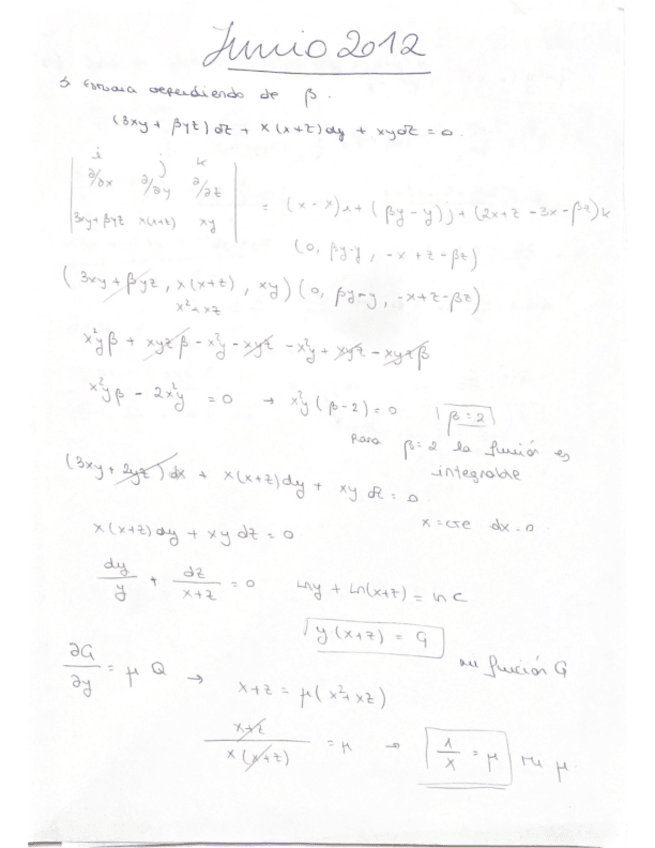 Junio 2012
dependiendo de β.
(3xy + βyz) dz + x(x+z) dy + xy dz = 0.
i j k
∂/∂x ∂/∂y ∂/∂z
3xy+βyz x(x+z) xy
= (x - x)i + (βy - y)j + (2x+z - 3x - βz)k
(0, βy-y, -x + z - βz)
(3xy + βyz, x(x+z), xy)(0, βy-y, -x+z-βz)
x²+xz
x²yβ + xyzβ - x²y - xyz - x²y + xyz - xyzβ
x²yβ - 2x²y = 0 → x²y(β-2) = 0 β = 2
Para β=2 la función es
integrable
(3xy + 2yz) dx + x(x+z) dy + xy dz = 0
x = cte dx = 0
x(x+z) dy + xy dz = 0
dy/y + dz/x+z = 0 lny + ln(x+z) = ln C
y·(x+z) = G
mi función G
∂G/∂y = μ Q → x+z = μ(x²+xz)
x+z / x(x+z) = μ → 1/x = μ mi μ